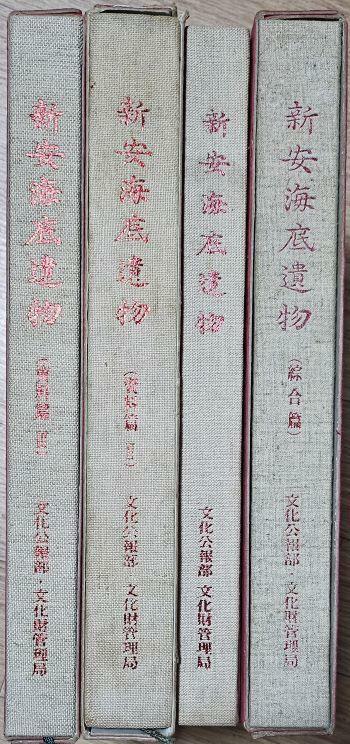 新安海底遺物
(資料篇 Ⅲ)
文化公報部·文化財管理局
新安海底遺物
(資料篇 Ⅱ)
文化公報部 文化財管理局
新安海底遺物
文化公報部 文化財管理局
新安海底遺物
(綜合篇)
文化公報部 文化財管理局